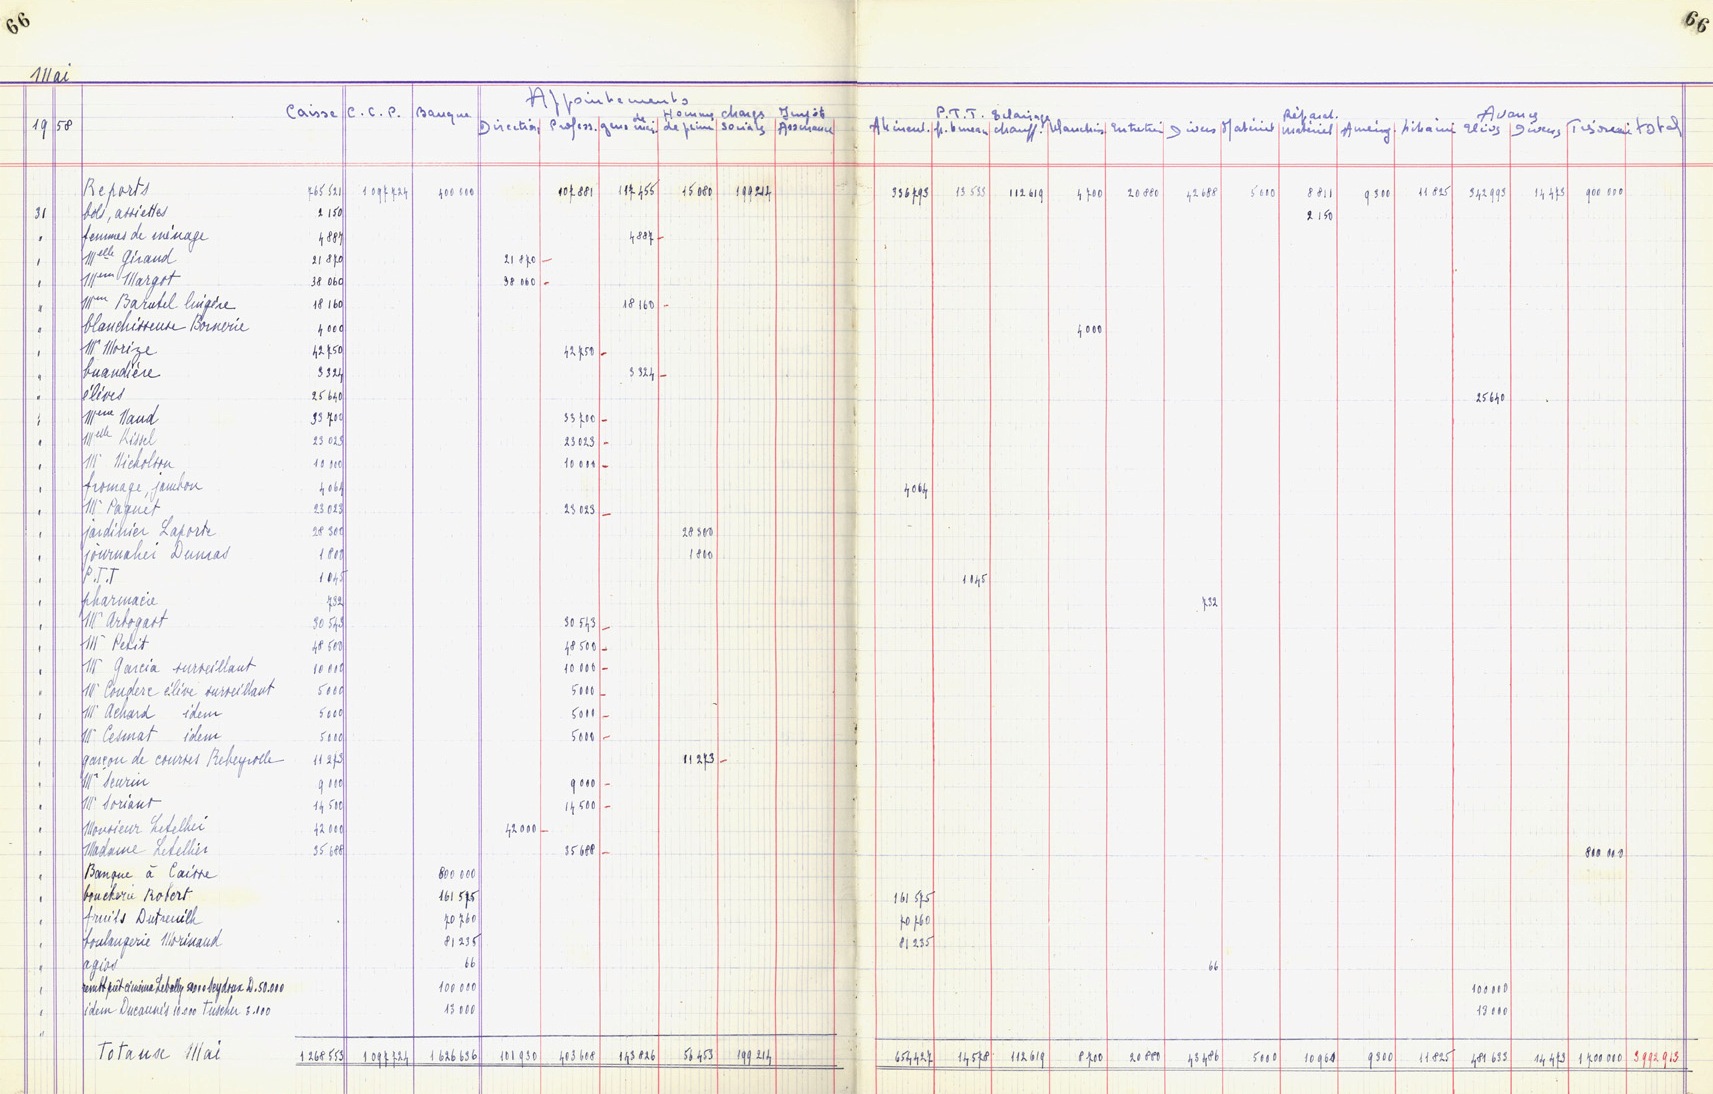 66 66
Mai
Appointements
Caisse C.C.P. Banque Homme charges Impôt P.T.T. Eclairage Réparat. Avances
19 58 Direction Profess. gens de mai. de peine sociales Assurance Aliment. f. bureau chauff. blanchis. Entretien Divers Matériel matériel Aménag. Elèves Divers Trésorerie total
Reports 765 521 1 097 724 400 000 107 881 117 455 15 080 199 214 336 793 13 533 112 619 4 700 20 880 42 688 5 000 8 811 9 300 11 825 342 993 14 473 900 000
31 bols, assiettes 2 150 2 150
" femmes de ménage 4 887 4 887
" Melle Giraud 21 870 21 870
" Mme Margot 38 060 38 060
" Mme Barutel lingère 18 160 18 160
" blanchisseuse Bornerie 4 000 4 000
" Mr Morize 42 750 42 750
" buandière 3 324 3 324
" élèves 25 640 25 640
" Mme Naud 33 700 33 700
" Melle Kissel 23 023 23 023
" Mr Nicholson 10 000 10 000
" fromage, jambon 4 064 4 064
" Mr Paquet 23 023 23 023
" jardinier Laporte 28 300 28 300
" journalier Dumas 1 800 1 800
" P.T.T 1 045 1 045
" pharmacie 732 732
" Mr Arbogast 30 543 30 543
" Mr Petit 48 500 48 500
" Mr Garcia surveillant 10 000 10 000
" Mr Couderc élève surveillant 5000 5000
" Mr Achard idem 5000 5000
" Mr Cesmat idem 5000 5000
" garçon de courses Rebeyrolle 11 273 11 273
" Mr Seurin 9 000 9 000
" Mr Soriano 14 500 14 500
" Monsieur Letellier 42 000 42 000
" Madame Letellier 35 688 35 688 800 000
" Banque à Caisse 800 000
" boucherie Robert 161 575 161 575
" fruits Dutreuilh 70 760 70 760
" boulangerie Morinaud 81 235 81 235
" agios 66 66
" D. 50.000 100 000 100 000
" idem 10.000 Tuscher 3.000 13 000 13 000
"
Totaux Mai 1 268 553 1 097 724 1 626 636 101 930 403 608 143 826 56 453 199 214 654 427 14 578 112 619 8 700 20 880 43 486 5000 10 961 9 300 11 825 481 633 14 473 1 700 000 3 992 913